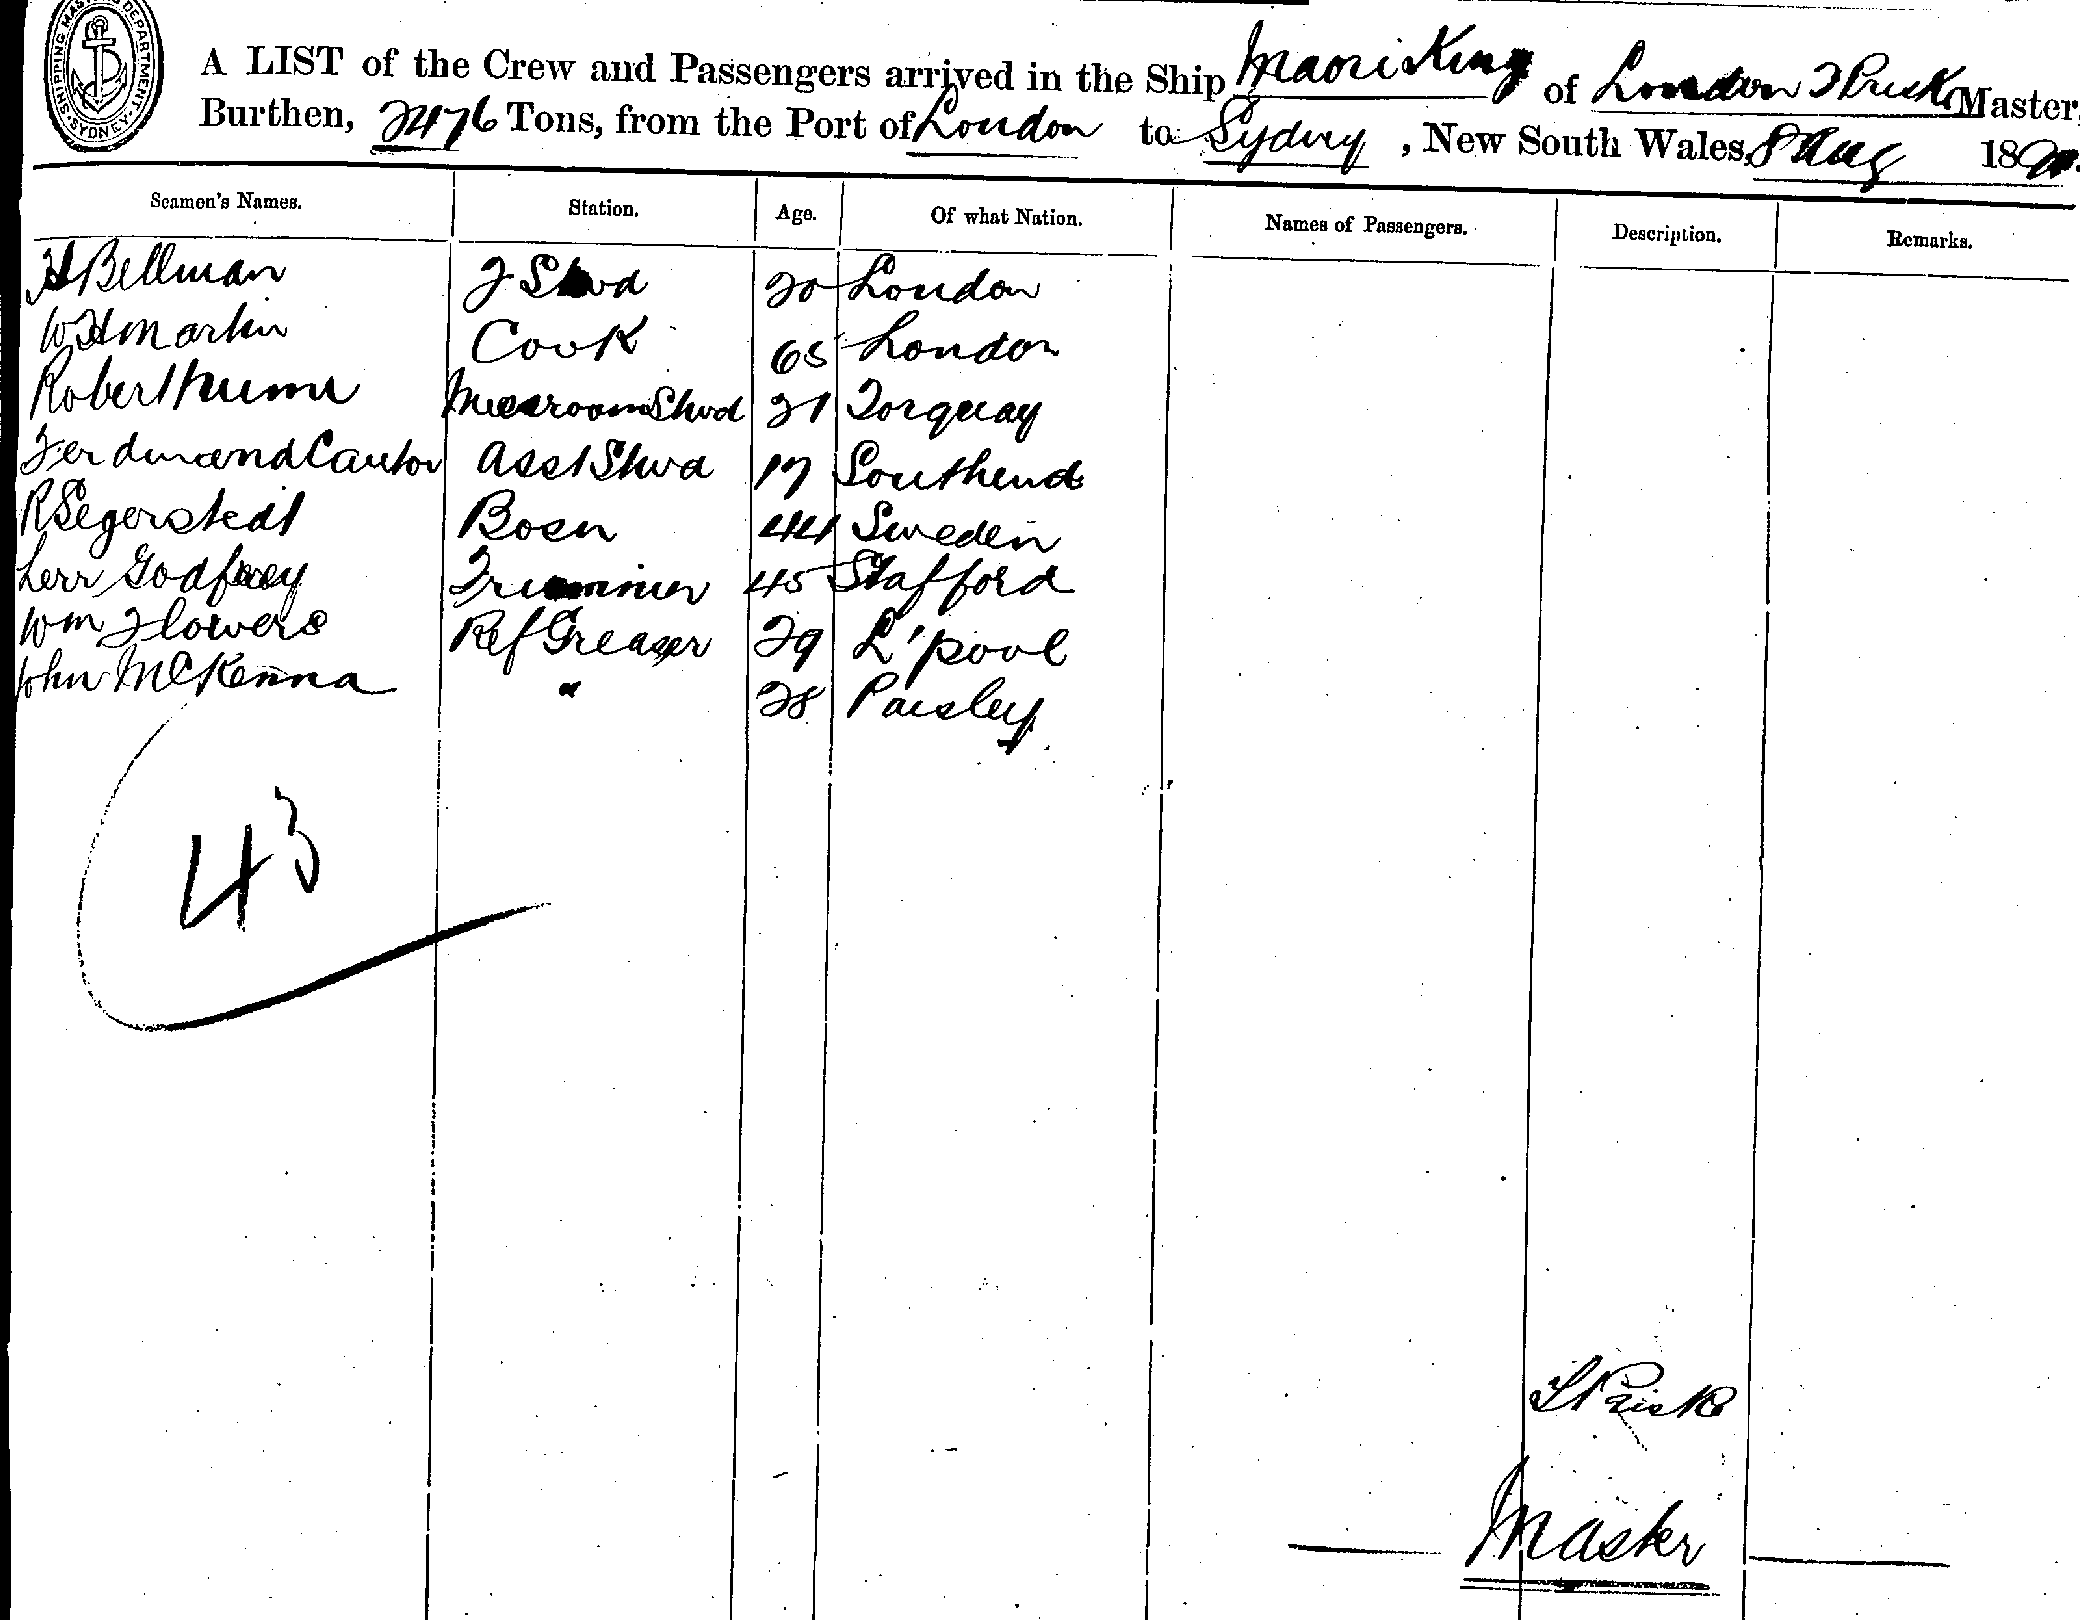 SHIPPING MASTERS DEPARTMENT SYDNEY
A LIST of the Crew and Passengers arrived in the Ship Maori King of London Prisk Master,
Burthen, 2476 Tons, from the Port of London to Sydney, New South Wales, 8 Aug 18
Seamen's Names. Station. Age. Of what Nation. Names of Passengers. Description. Remarks.
H Bellman 2 Stwd 20 London
W H Martin Cook 65 London
Robert Messroom Stwd 21 Torquay
Ferdinand Cantor Asst Stwd 17 Southend
R Segerstedt Bosn 44 Sweden
Godfrey Trimmer 45 Stafford
Wm Flowers Ref Greaser 29 L'pool
John McKenna " 28 Paisley
43
Prisk
Master